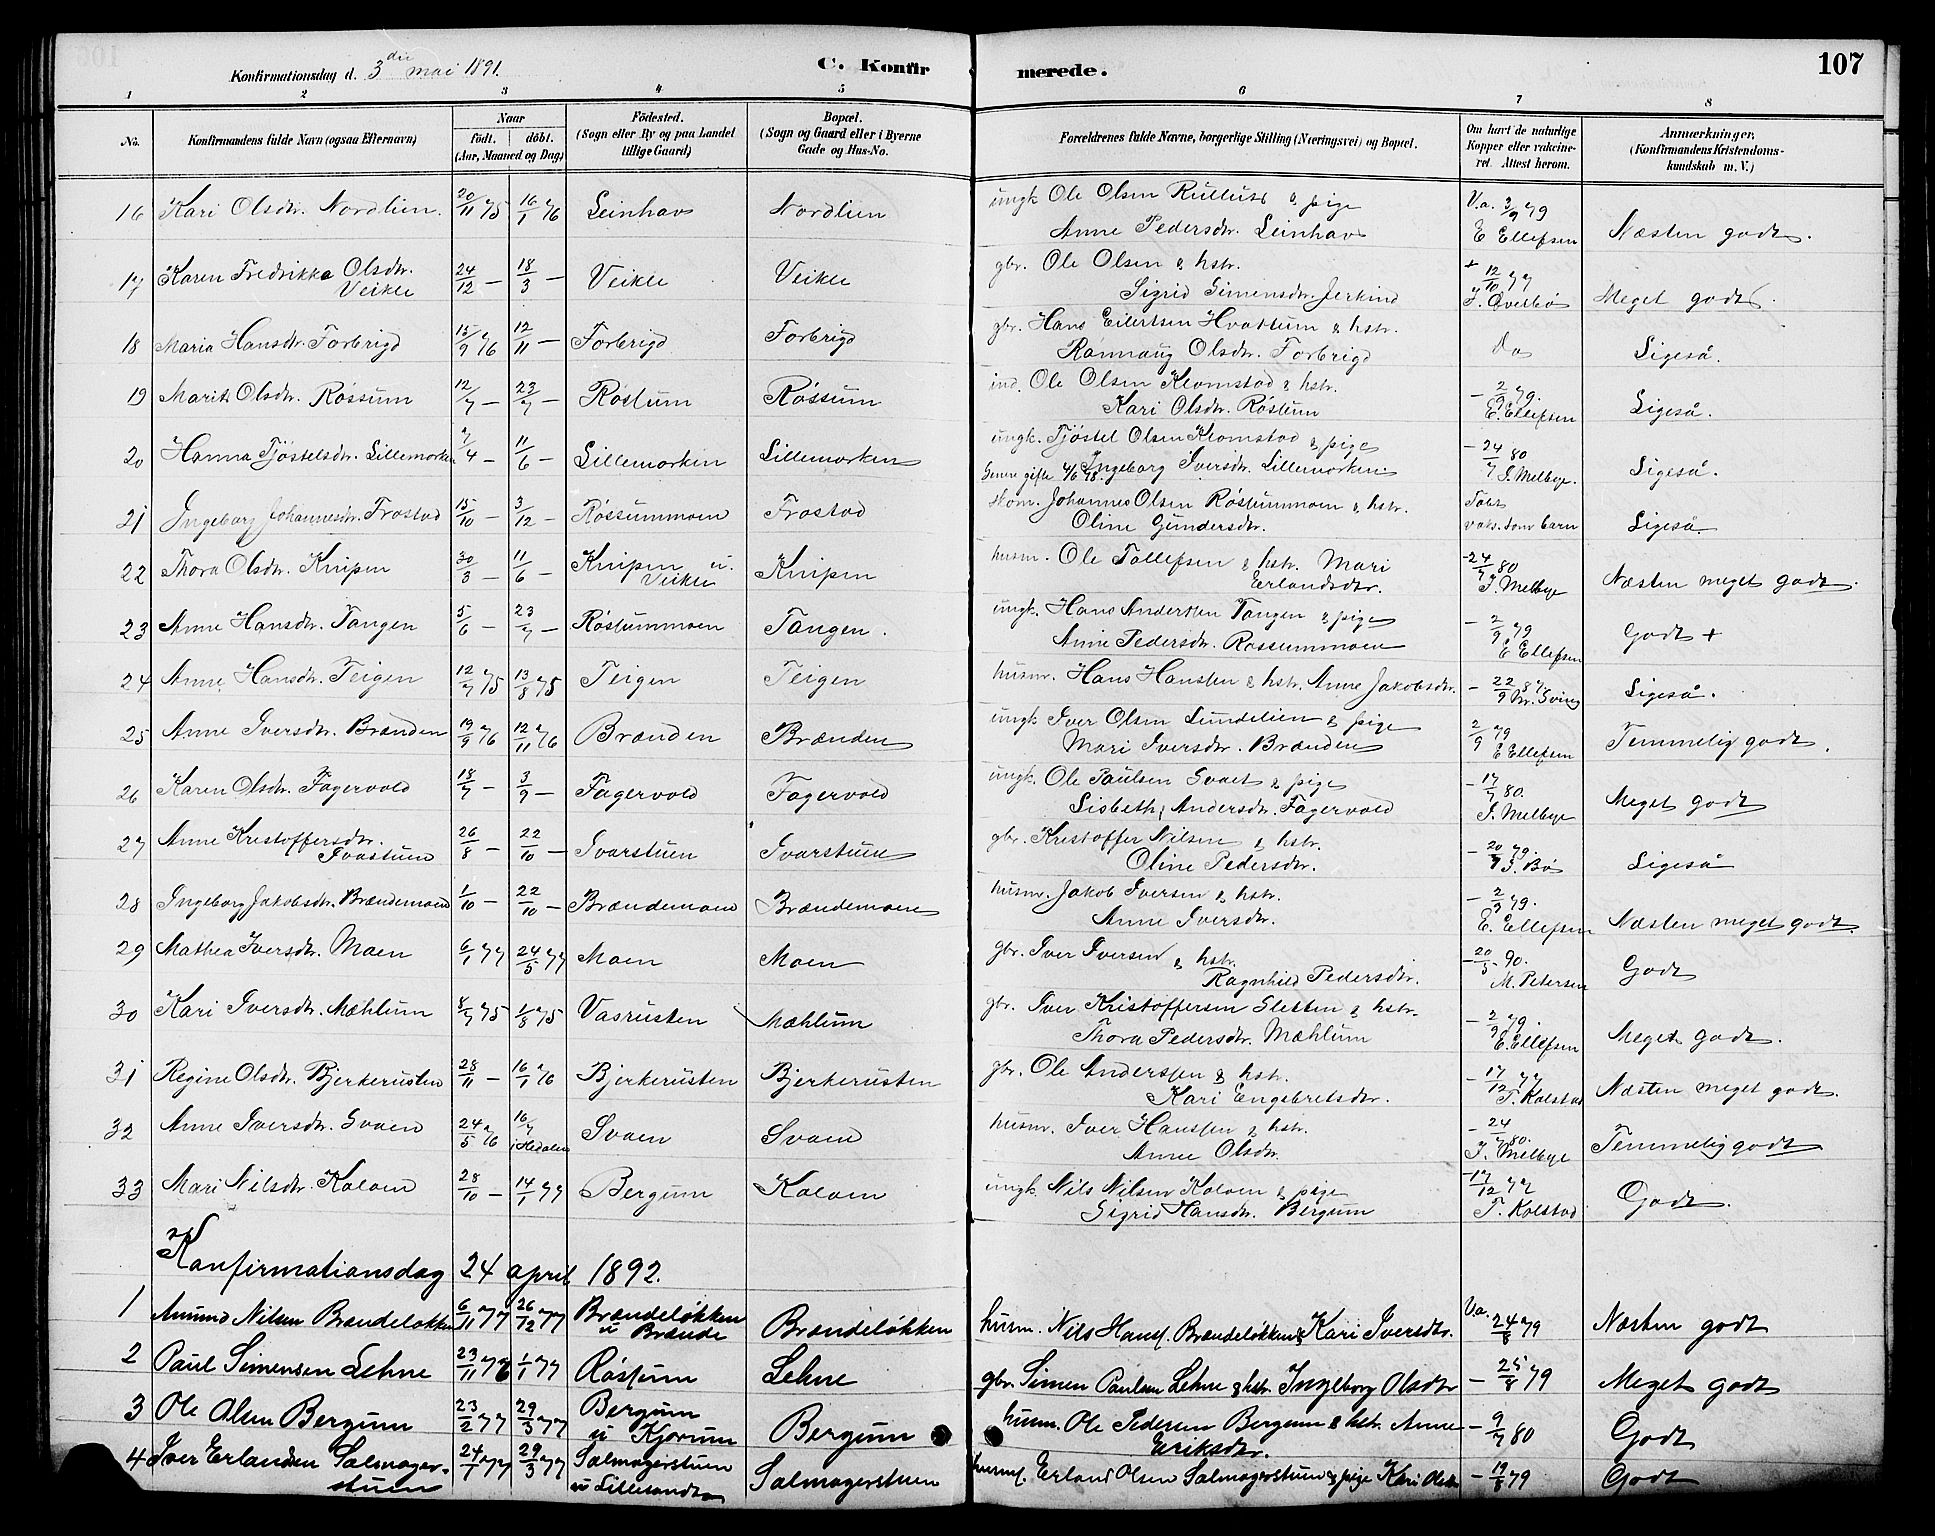 107
Konfirmationsdag d. 3die mai 1891.
C. Konfirmerede.
1 2 3 4 5 6 7 8
No.
Konfirmandens fulde Navn (ogsaa Efternavn)
Naar
født. døbt.
(Aar, Maaned og Dag)
Fødested.
(Sogn eller By og paa Landet
tillige Gaard)
Bopæl.
(Sogn og Gaard eller i Byerne
Gade og Hus-No.
Forældrenes fulde Navne, borgerlige Stilling (Næringsvei) og Bopæl.
Om havt de naturlige
Kopper eller vakcine-
ret. Attest herom.
Anmærkninger,
(Konfirmandens Kristendoms-
kundskab m. V.)
16 Kari Olsdtr. Nordlien. 20/11 75 16/1 76 Leinhav Nordlien ungk. Ole Olsen Rullust & pige Va. 3/9 79
Anne Pedersdtr. Leinhav E Ellefsen Næsten godt.
17 Karen Fredrikke Olsdtr. 24/12 — 18/3 — Veikle Veikle gbr. Ole Olsen & hstr. + 12/10 77
Veikle Sigrid Simensdtr. Jerkind T. Øverbø Meget godt.
18 Maria Hansdtr. Forbrigd 15/9 76 12/11 — Forbrigd Forbrigd gbr. Hans Eilertsen Hvattum & hstr.
Rønnaug Olsdtr. Forbrigd Do Ligeså.
19 Marit Olsdtr. Røssum 12/7 — 23/7 — Røssum Røssum ind. Ole Olsen Klomstad & hstr. — 2/9 79.
Kari Olsdtr. Røssum E. Ellefsen Ligeså.
20 Hanna Tjøstelsdr. Lillemorken 7/4 — 11/6 — Lillemorken Lillemorken ungk. Tjøstel Olsen Klomstad & pige — 24/7 80
Senere gifte 4/6 78. Ingeborg Iversdtr. Lillemorken. I. Melbye. Ligeså.
21 Ingeborg Johannesdr. Frostad 15/10 — 3/12 — Røssummoen Frostad Johannes Olsen Røssummoen & hstr.
Oline Gundersdtr. vak. som barn Ligeså.
22 Thora Olsdtr. Knipen 30/3 — 11/6 — Knipen u. Knipen husm. Ole Tollefsen & hstr. Mari — 24/7 80
Veikle Erlandsdtr. I. Melbye Næsten meget godt.
23 Anne Hansdtr. Tangen 5/6 — 23/7 — Røssummoen Tangen. ungk. Hans Andersen Tangen & pige — 2/9 79
Anne Pedersdtr. Røssummoen E Ellefsen Godt +
24 Anne Hansdtr. Teigen 12/7 75 13/8 75 Teigen Teigen husm. Hans Hansen & hstr. Anne Jakobsdtr. — 22/9 87 Ligeså.
25 Anne Iversdtr. Brænden 19/9 76 12/11 76 Brænden Brænden ungk. Iver Olsen Lundelien & pige 2/9 79
Mari Iversdtr. Brænden E Ellefsen Temmelig godt.
26 Karen Olsdtr. Fagervold 18/7 — 3/9 — Fagervold Fagervold ungk. Ole Paulsen Svaet & pige — 17/7 80.
Lisbeth Andersdtr. Fagervold I. Melbye Meget godt
27 Anne Kristoffersdtr. 26/8 — 22/10 — Ivarstuen Ivarstuen gbr. Kristoffer Nilsen & hstr. — 20/9 79.
Ivastuen Oline Pedersdtr. I. Bø Ligeså
28 Ingeborg Jakobsdtr. Brændemoen 1/10 — 22/10 — Brændemoen Brændemoen husm. Jakob Iversen & hstr. — 2/9 79.
Anne Iversdtr. E. Ellefsen Næsten meget godt.
29 Mathea Iversdtr. Moen 6/1 77 24/5 77 Moen Moen gbr. Iver Iversen & hstr. — 20/5 90.
Ragnhild Pedersdtr. M. Petersen Godt
30 Kari Iversdtr. Mæhlum 8/7 75 1/8 75 Vasrusten Mæhlum gbr. Iver Kristoffersen Sletten & hstr. — 2/9 79.
Thora Pedersdtr. Mæhlum E. Ellefsen Meget godt.
31 Regine Olsdtr. Bjerkerusten 28/11 — 16/1 76 Bjerkerusten Bjerkerusten gbr. Ole Anderssen & hstr. — 17/12 77
Kari Engebretsdtr. T. Kolstad Næsten meget godt.
32 Anne Iversdtr. Svaen 24/5 76 16/7 i Hedalen Svaen Svaen husm. Iver Hanssen & hstr. — 24/7 80.
Anne Olsdtr. I. Melbye Temmelig godt
33 Mari Nilsdtr. Kolven 28/10 — 14/1 77 Bergum Kolven ungk. Nils Nilsen Kolven & pige — 17/12 77
Sigrid Hansdtr. Bergum T. Kolstad Godt.
Konfirmationsdag 24 april 1892.
1 Amund Nilsen Brændeløkken 6/11 77 26/12 77 Brændeløkken u Brænde Brændeløkken husm. Nils Hans. Brændeløkken & Kari Iversdtr. Va. 24/8 79 Næsten godt
2 Paul Simensen Lehne 23/11 76 1/1 77 Røssum Lehne gbr. Simen Paulsen Lehne & hstr. Ingeborg Olsdtr — 25/8 79 Meget godt
3 Ole Olsen Bergum 23/2 77 29/3 77 Bergum u Kjorum Bergum husm. Ole Pedersen Bergum & hstr. Anne — 9/7 80 Godt
Eriksdtr.
4 Iver Erlandsen Salmager- 24/1 77 29/3 77 Salmagerstuen Salmagerstuen Erland Olsen Salmagerstuen & pige Kari — 19/8 79 Godt
stuen